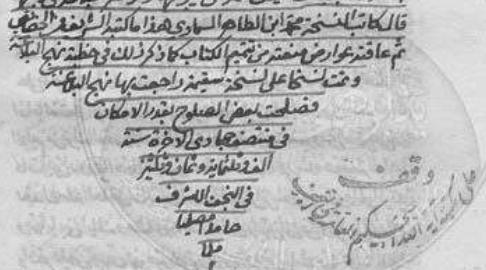 قال كاتب النسخة محمد ابن الطاهر السماوي هذا ما كتبه الشريف الرضي
ثم عاقته عوارض منعته من تتميم الكتاب كما ذكر ذلك في خطبة نهج البلاغة
وتمت نسخا على نسخة سقيمة راجعت بها نهج البلاغة
فصلحت بعض الصلوح بقدر الامكان
في منتصف جمادى الاخرة سنة
الف وثلثماية وثمان وثلثين
في النجف الاشرف
حامدا مصليا
وقف